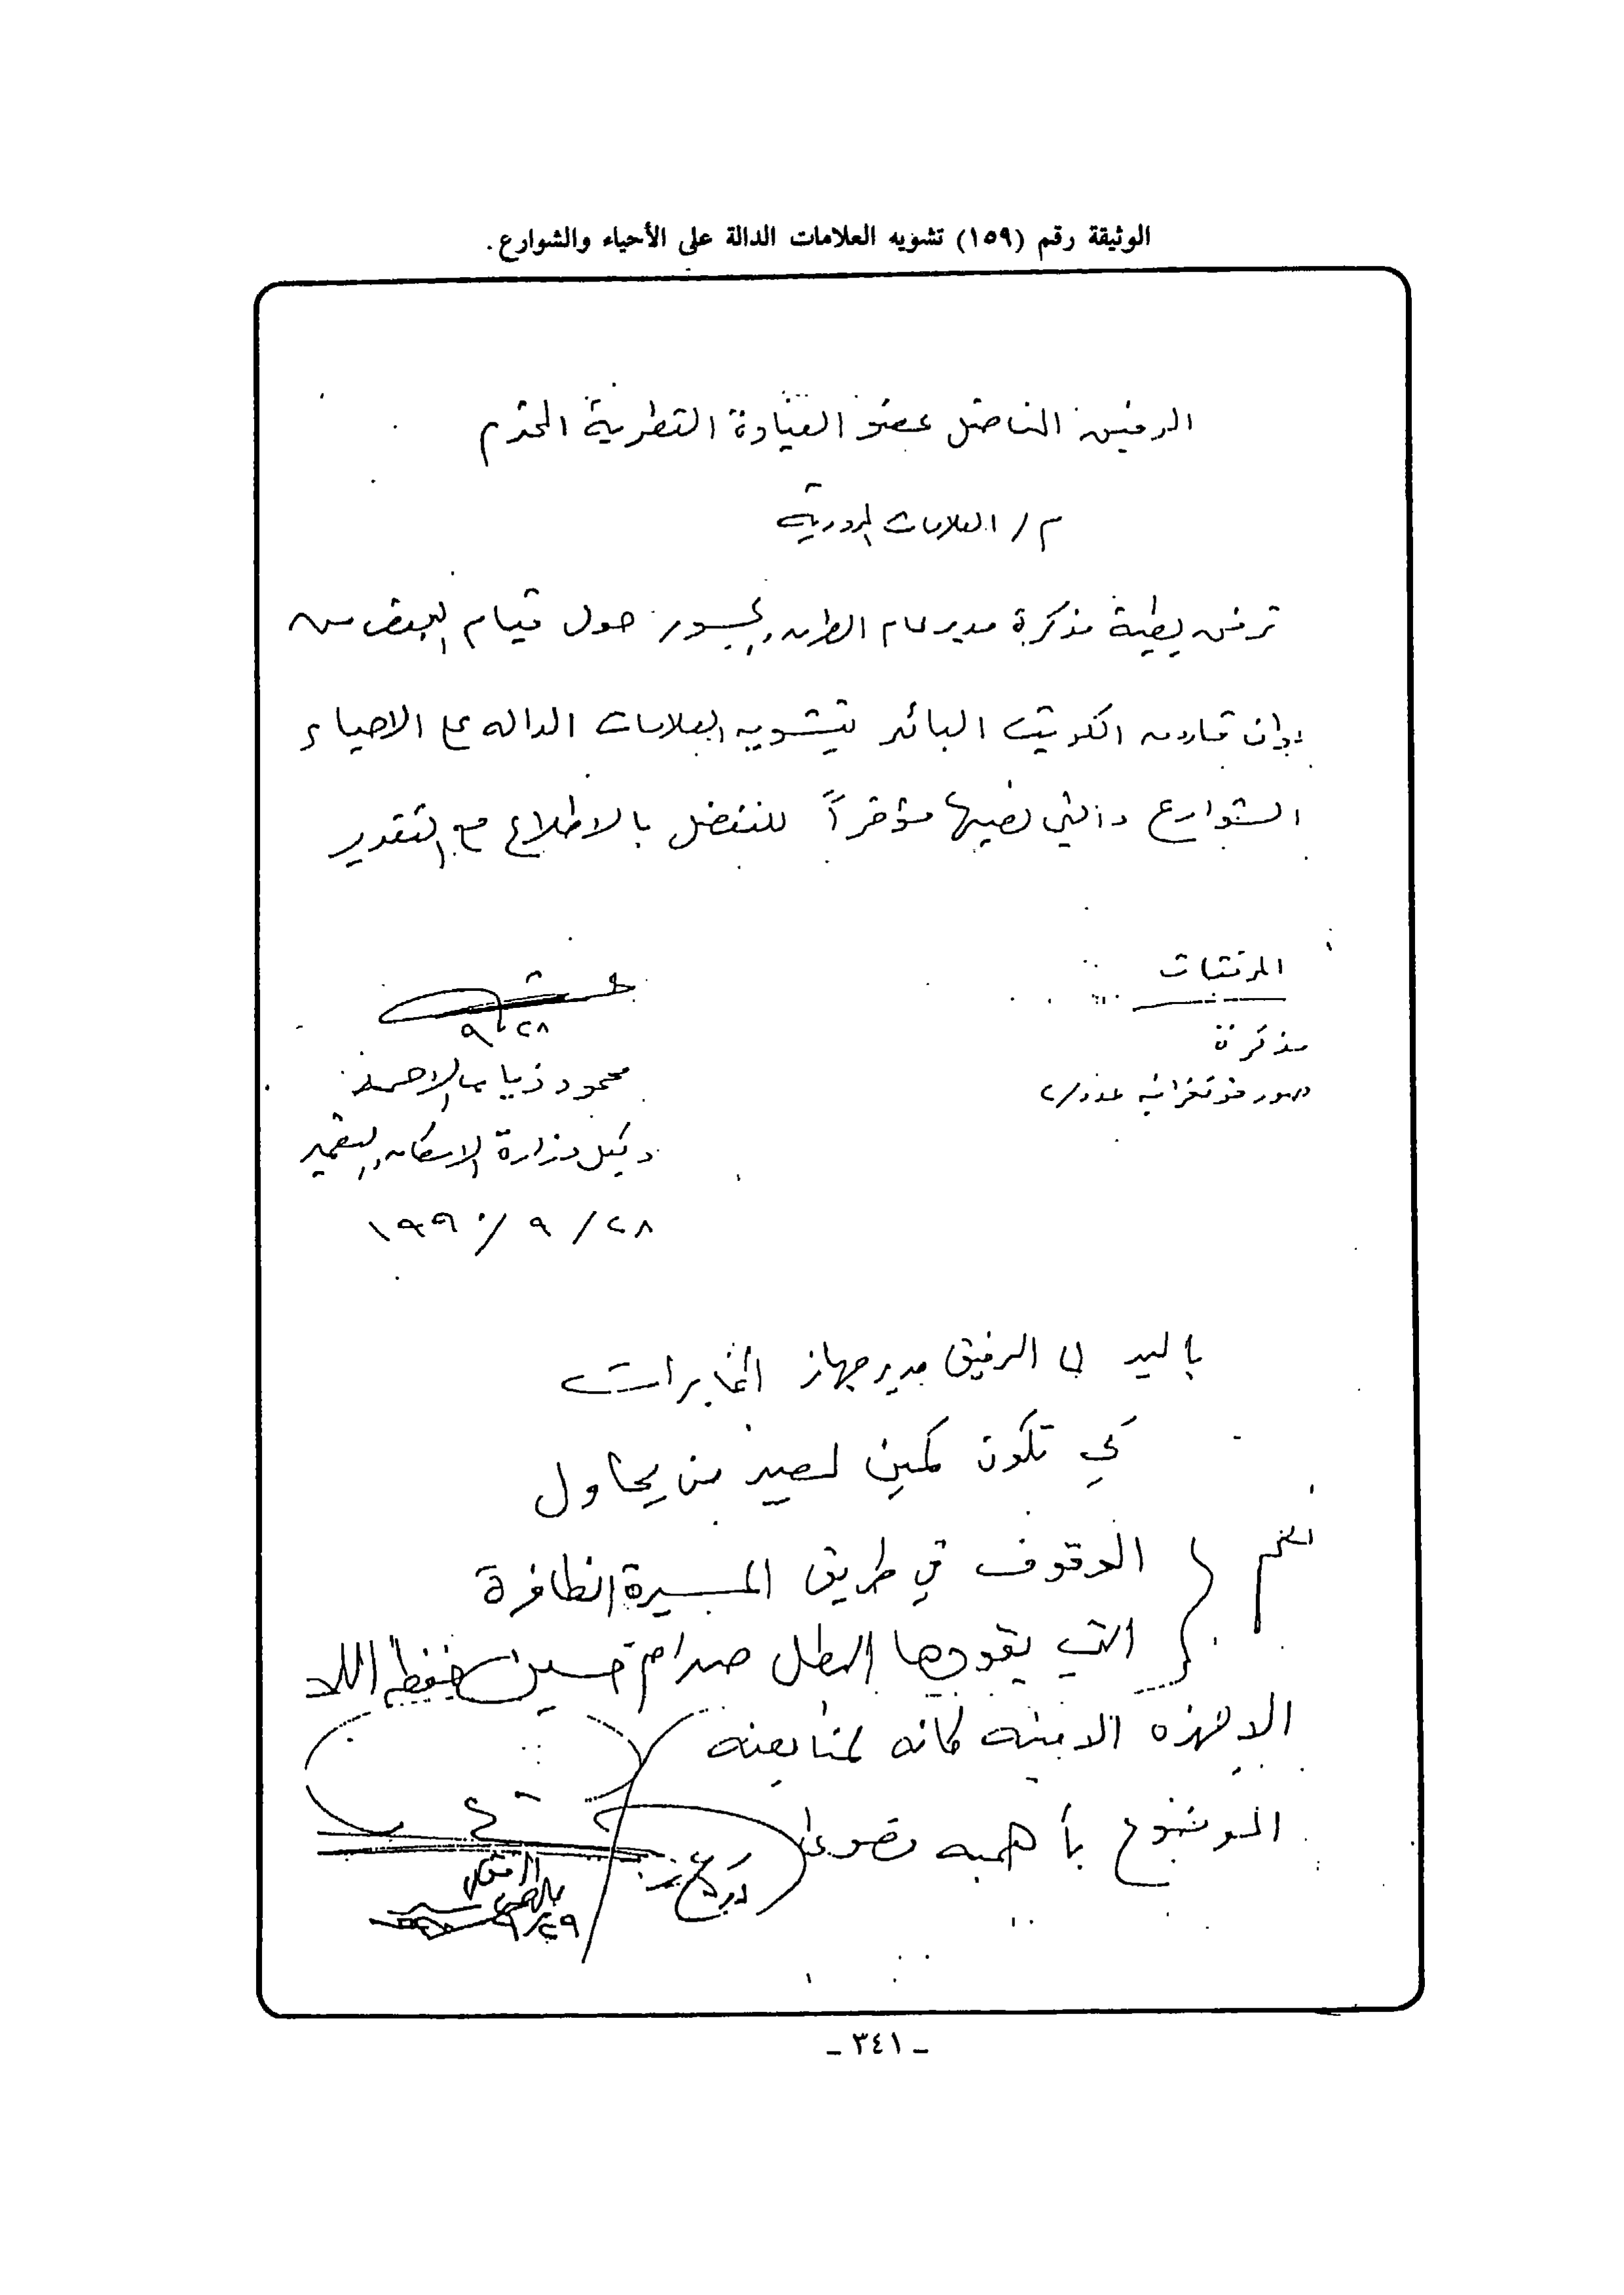 الوثيقة رقم (١٥٩) تشويه العلامات الدالة على الأحياء والشوارع .
الرفيق المناضل عضو القيادة القطرية المحترم
م / العلامات المرورية
نرفق بطيه مذكرة مدير عام الطرق والجسور حول قيام البعض من
الكويت البائد بتشويه العلامات الداله على الاحياء
الشوارع والتي نصبها مؤخراً للتفضل بالاطلاع مع التقدير
المرفقات
مذكرة
صور فوتغرافيه عدد/٢
٢٨/٩
محمود ذياب الاحمد
وكيل وزارة الاسكان والتعمير
٢٨ / ٩ / ١٩٩٠
باليد الى الرفيق مدير جهاز المخابرات
كي تكون كمين لصيد من يحاول
الوقوف في طريق المسيرة الظافرة
التي يقودها البطل صدام حسين حفظه الله
الاجهزه الامنيه كافه لمتابعته
الموضوع بأهميه
٢٩/٩
ـ ٣٤١ ـ